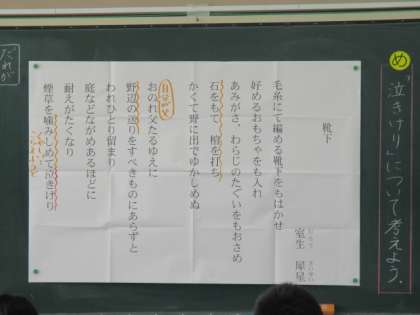 め 「泣きけり」について考えよう。
靴下
室生 犀星
毛糸にて編める靴下をもはかせ
好めるおもちゃをも入れ
あみがさ、わらじのたぐいをもおさめ
石をもて 棺を打ち
かくて野に出でゆかしめぬ
おのれ父たるゆえに
野辺の送りをすべきものにあらずと
われひとり留まり
庭などながめあるほどに
耐えがたくなり
煙草を噛みしめて泣きけり
だれが